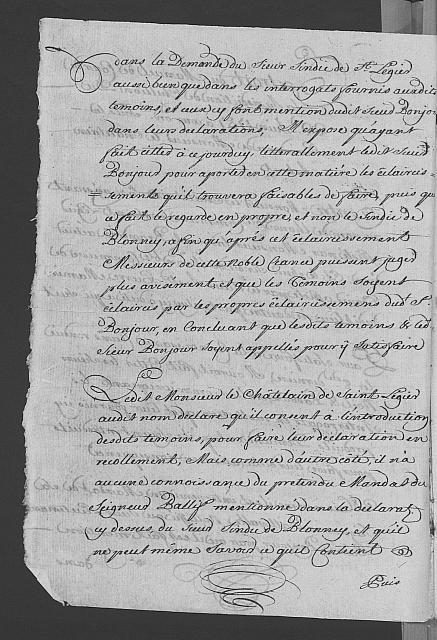 dans la Demande du Sieur Sindic de St. Legier
aussi bien que dans les interrogats fournis auxdits
temoins, et aux cy font mention dudit Sieur Bonjour
dans leurs declarations, Il expose qu'ayant
fait citter à ce jourduy, litterallement ledit Sieur
Bonjour pour aporter en cette matiére les éclaircis-
sements qu'il trouvera faisables de faire, puis que
ce fait le regarde en propre, et non le Sindic de
Blonney, afin qu'aprés cet éclaircissement
Messieurs de cette Noble Chance puissent juger
plus avisément, et que les Temoins soyent
éclaircis par les propres éclaircissemens dud. Sr.
Bonjour, en Concluant que lesdits temoins & led.
Sieur Bonjour soyent appellés pour y Satisfaire
Ledit Monsieur le Châtelain de Saint Legier
audit nom declare qu'il consent à l'introduction
desdits temoins, pour faire leur declaration en
recollement, Mais comme d'autre côté, il n'a
aucune connoissance du pretendu Mandat du
Seigneur Ballif mentionné dans la déclarat.
cy dessus, du Sieur Sindic de Blonney, et qu'il
ne peut même Savoir ce qu'il Contient
Puis